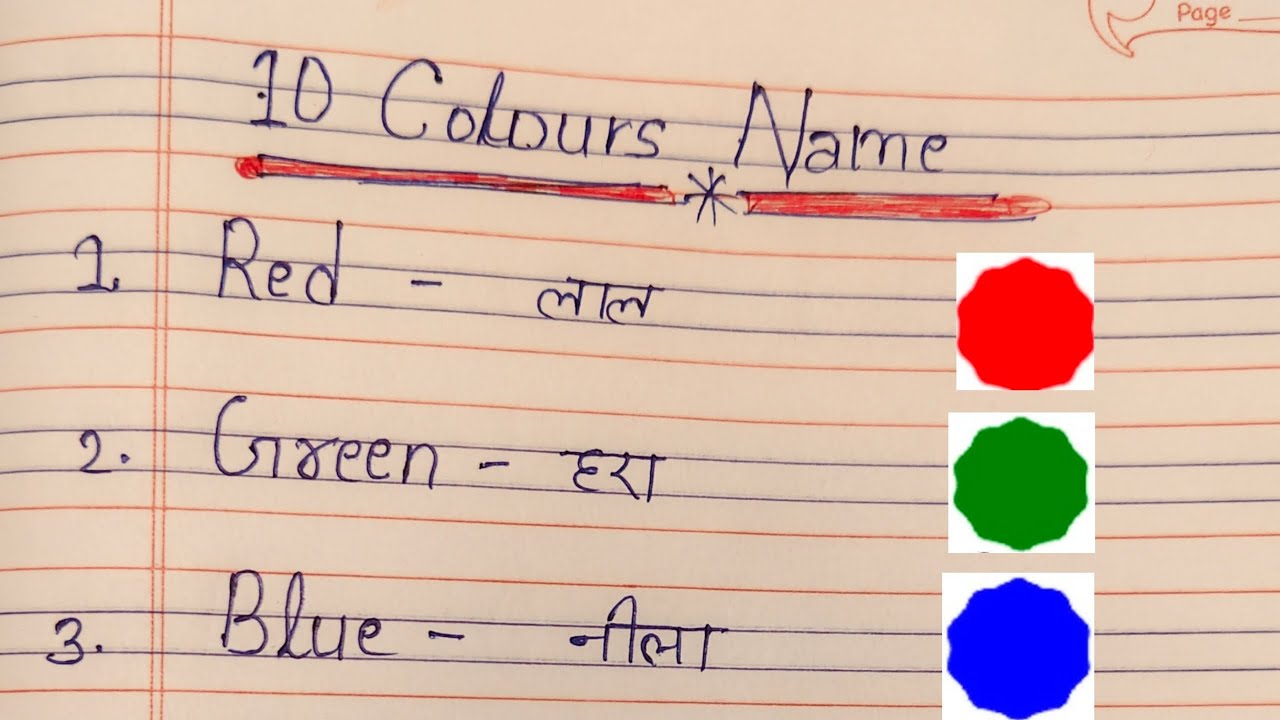 Page
10 Colours Name
1. Red - लाल
2. Green - हरा
3. Blue - नीला